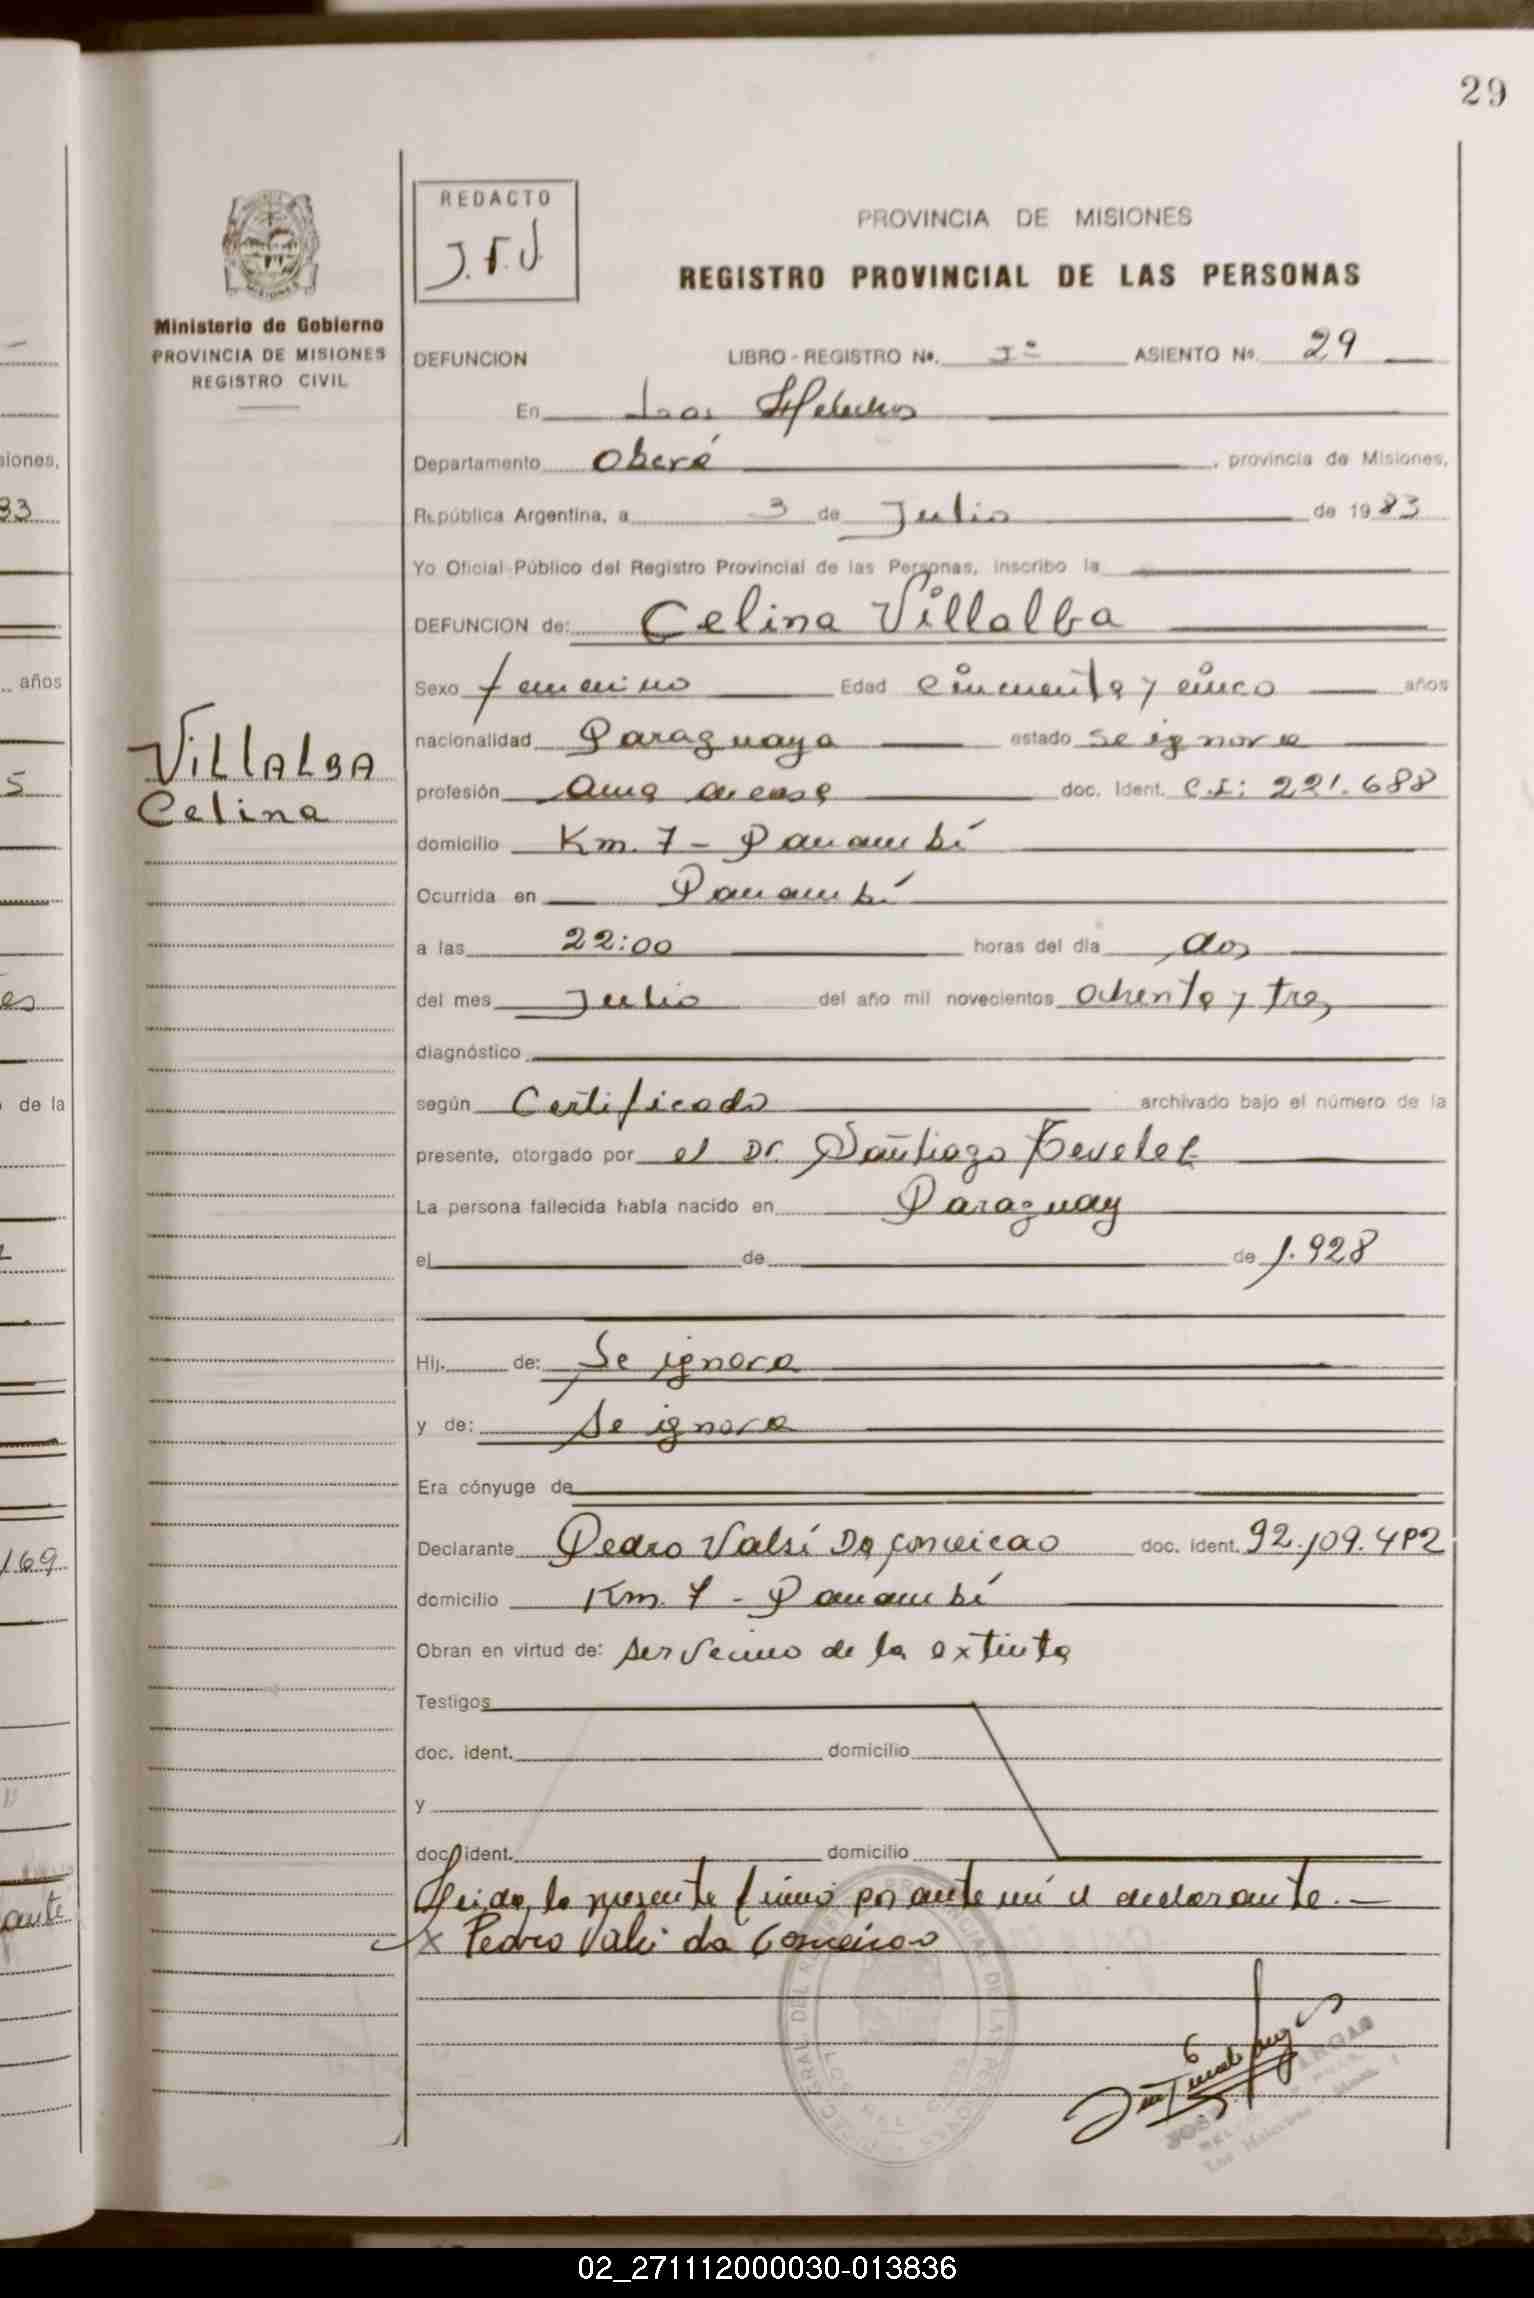 29
REDACTO
J.F.V.
PROVINCIA DE MISIONES
REGISTRO PROVINCIAL DE LAS PERSONAS
Ministerio de Gobierno
PROVINCIA DE MISIONES
REGISTRO CIVIL
DEFUNCION LIBRO - REGISTRO Nº. Iº ASIENTO Nº. 29
En Los Helechos
Departamento Oberá, provincia de Misiones,
República Argentina, a 3 de Julio de 1983
Yo Oficial Público del Registro Provincial de las Personas, inscribo la
DEFUNCION de: Celina Villalba
Sexo femenino Edad cincuenta y cinco años
VillALBA
Celina
nacionalidad Paraguaya estado se ignora
profesión Ama de casa doc. Ident. C.I: 221.688
domicilio Km. 7 - Panambí
Ocurrida en Panambí
a las 22:00 horas del día dos
del mes Julio del año mil novecientos ochenta y tres
diagnóstico
según Certificado archivado bajo el número de la
presente, otorgado por el Dr. Santiago
La persona fallecida había nacido en Paraguay
el de de 1.928
Hij. de: Se ignora
y de: Se ignora
Era cónyuge de
Declarante Pedro Valsí Da Conceicao doc. ident. 92.109.492
domicilio Km. 7 - Panambí
Obran en virtud de: ser vecino de la extinta
Testigos
doc. ident. domicilio
y
doc. ident. domicilio
Leida la presente firmó por ante mí el declarante.-
x Pedro Valsi da Conceicao
siones,
83
años
5
es
de la
169
ante
02_271112000030-013836